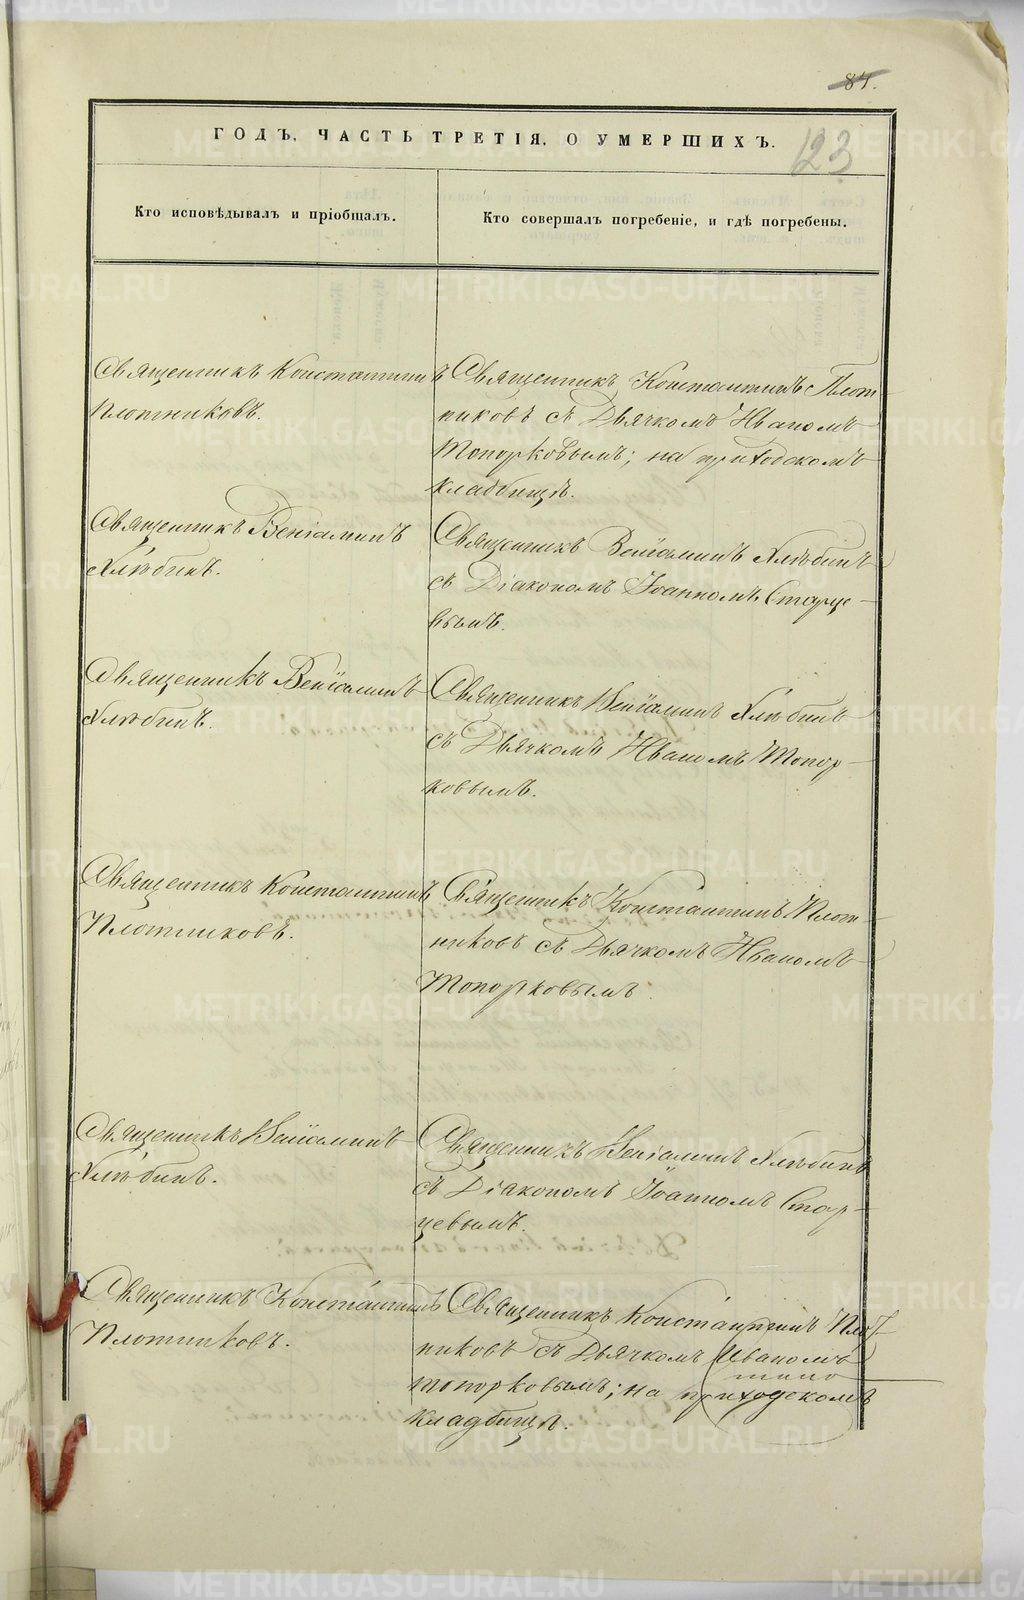 84.
123
ГОДЪ, ЧАСТЬ ТРЕТІЯ, О УМЕРШИХЪ.
Кто исповѣдывалъ и пріобщалъ.
Кто совершалъ погребеніе, и гдѣ погребены.
Священникъ Константинъ
Плотниковъ.
Священникъ Константинъ Плот-
никовъ съ Дьячкомъ Иваномъ
Топорковымъ; на приходскомъ
кладбищѣ.
Священникъ Веніаминъ
Хлѣбинъ.
Священникъ Веніаминъ Хлѣбинъ
съ Діакономъ Іоанномъ Старце-
вымъ.
Священникъ Веніаминъ
Хлѣбинъ.
Священникъ Веніаминъ Хлѣбинъ
съ Дьячкомъ Иваномъ Топор-
ковымъ.
Священникъ Константинъ
Плотниковъ.
Священникъ Константинъ Плот-
никовъ съ Дьячкомъ Иваномъ
Топорковымъ.
Священникъ Веніаминъ
Хлѣбинъ.
Священникъ Веніаминъ Хлѣбинъ
съ Діакономъ Іоанномъ Стар-
цевымъ.
Священникъ Константинъ
Плотниковъ.
Священникъ Константинъ Плот-
никовъ съ Дьячкомъ Иваномъ
Топорковымъ; на приходскомъ
кладбищѣ.
METRIKI.GASO-URAL.RU